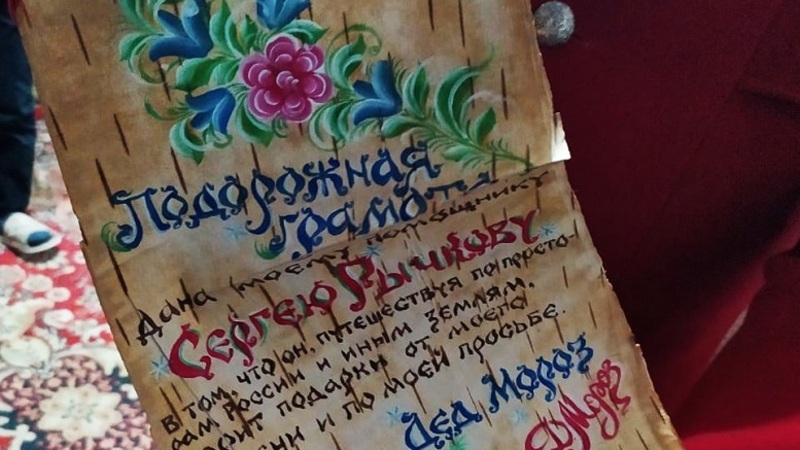 Подорожная
грамота
Дана моему помощнику
Сергею Рычкову
в том, что он, путешествуя по просто-
рам России и иным землям,
дарит подарки от моего
имени и по моей просьбе.
Дед Мороз
ДМороз